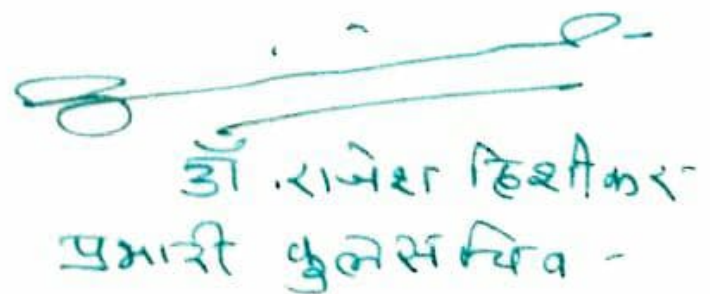 डॉ. राजेश हिशीकर
प्रभारी कुलसचिव -